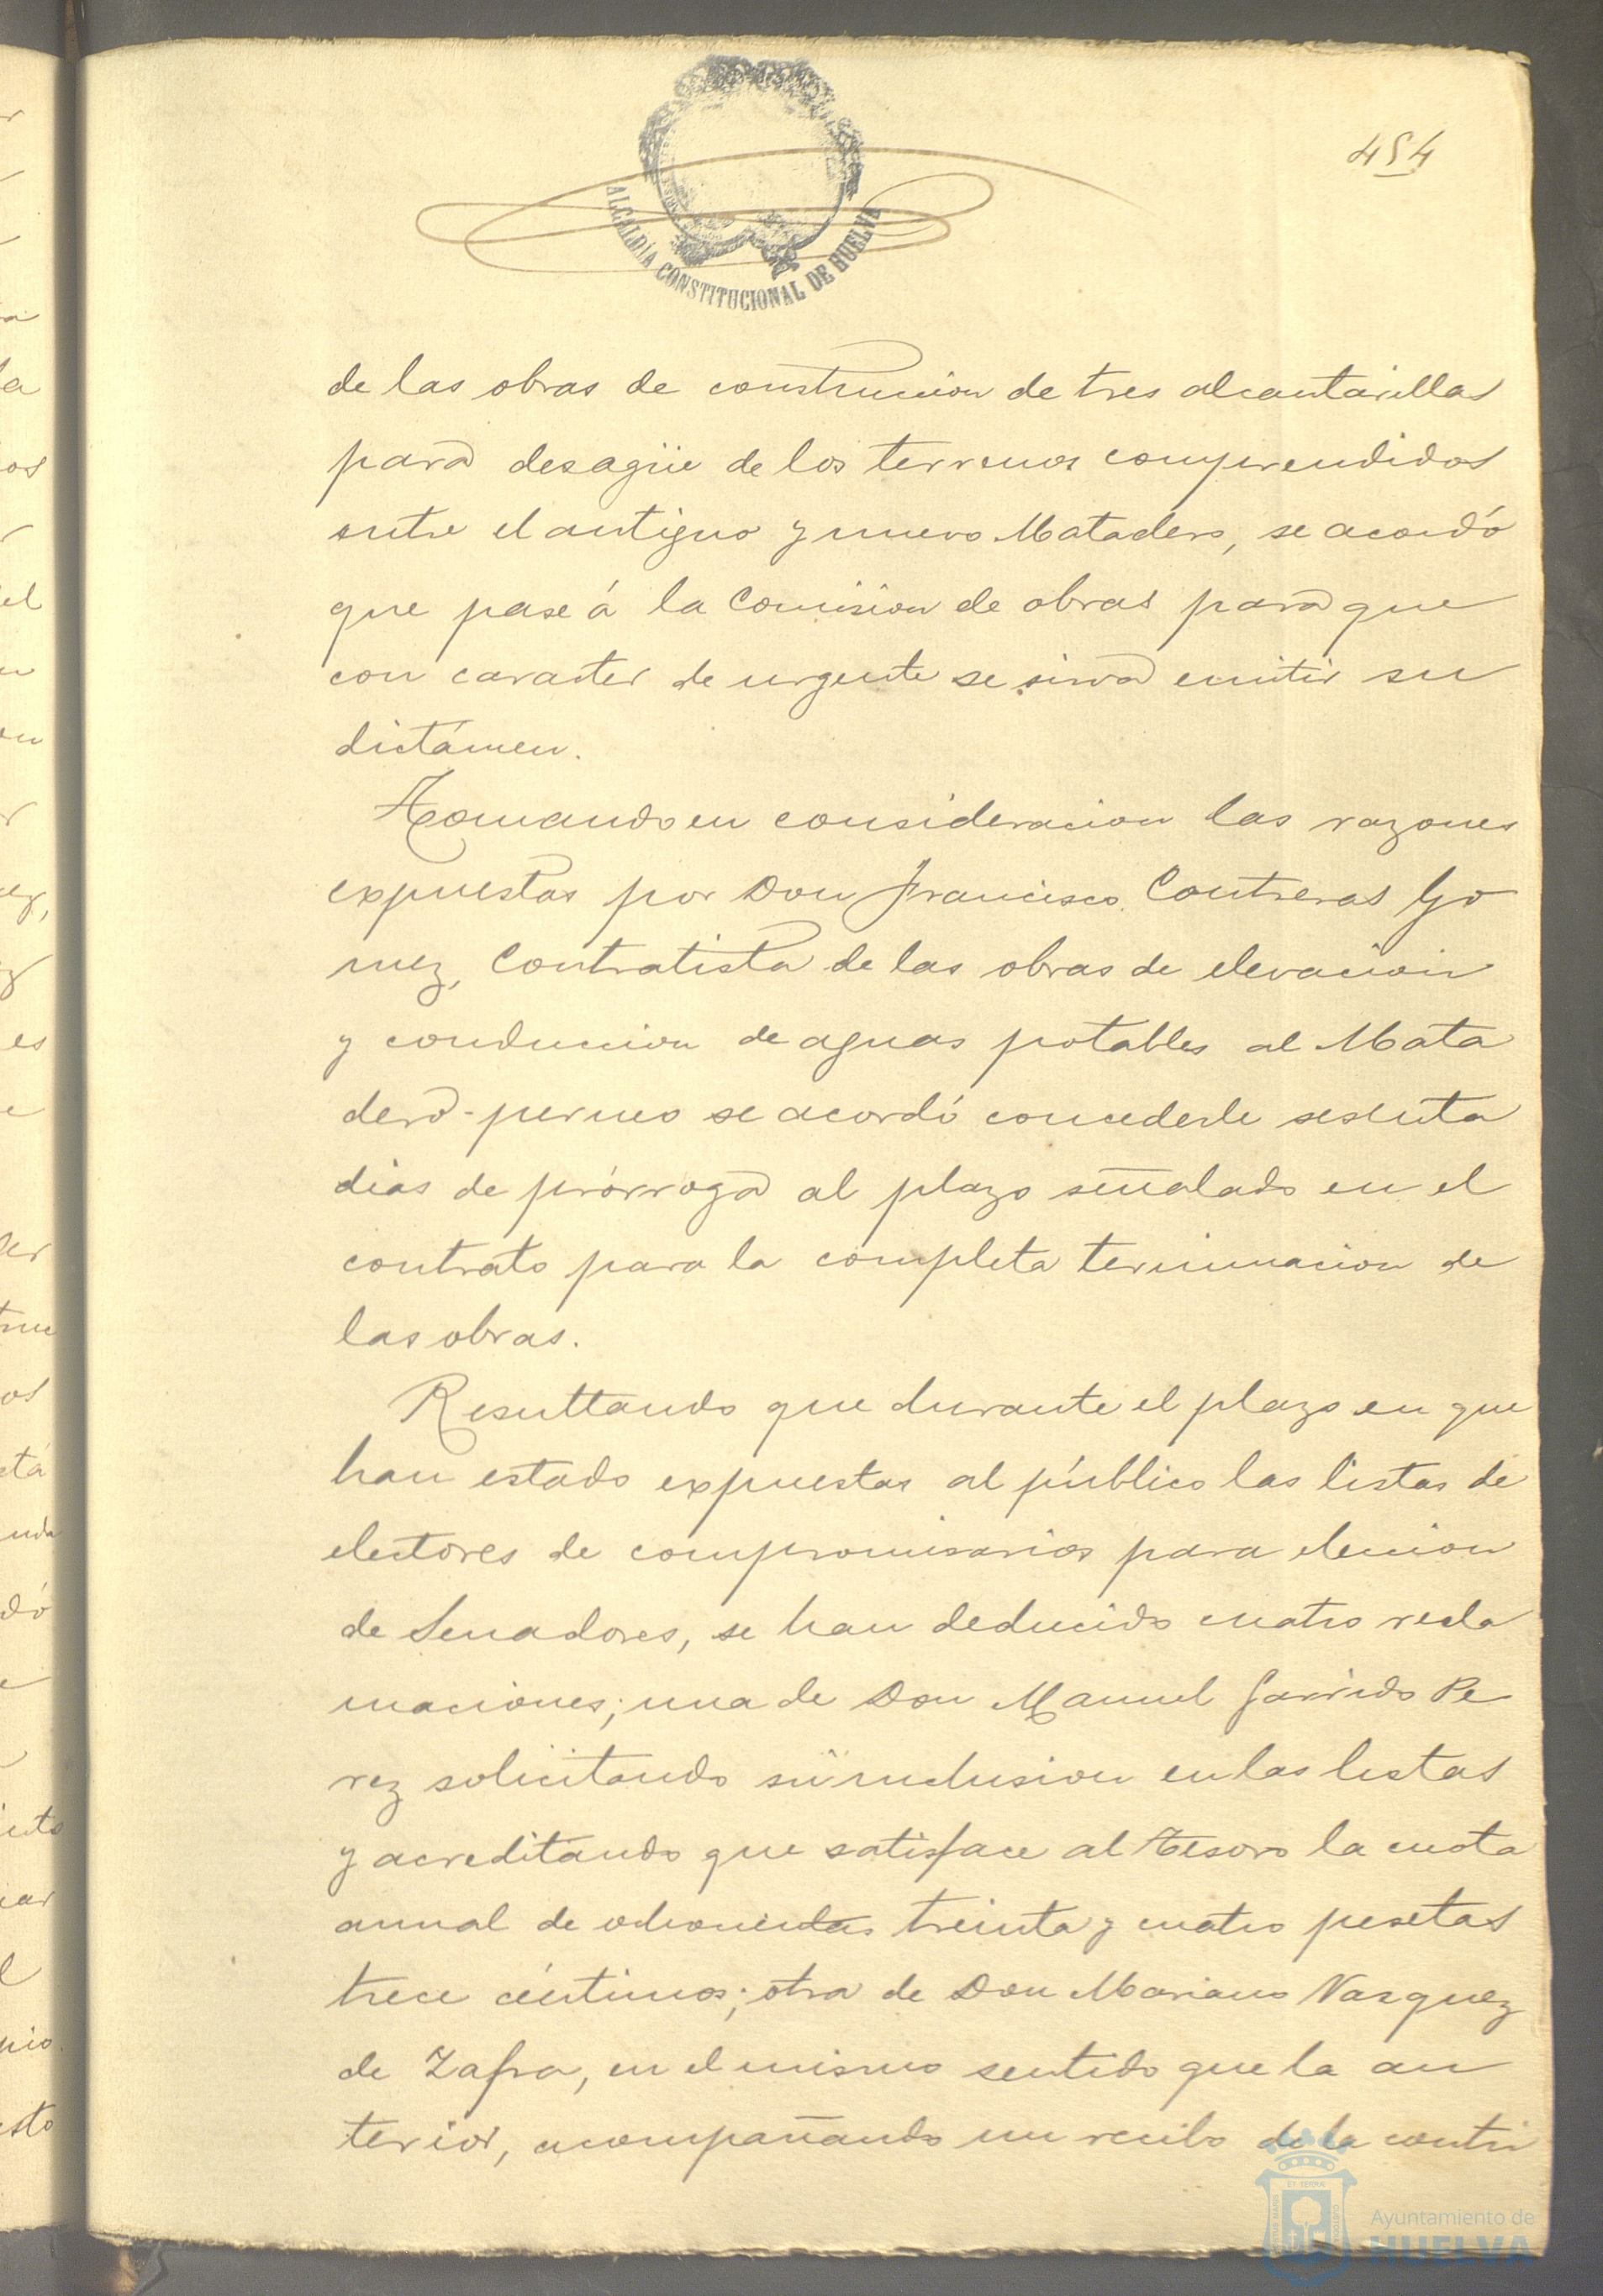 454
ALCALDÍA CONSTITUCIONAL DE HUELVA
de las obras de construccion de tres alcantarillas
para desagüe de los terrenos comprendidos
entre el antiguo y nuevo Matadero, se acordó
que pase á la Comision de obras para que
con caracter de urgente se sirva emitir su
dictámen.
Tomando en consideracion las razones
expuestas por Don Francisco Contreras Go
mez, Contratista de las obras de elevacion
y conduccion de aguas potables al Mata
dero-perneo se acordó concederle sesenta
dias de prórroga al plazo señalado en el
contrato para la completa terminacion de
las obras.
Resultando que durante el plazo en que
han estado expuestas al público las listas de
electores de compromisarios para eleccion
de Senadores, se han deducido cuatro recla
maciones; una de Don Manuel Garrido Pe
rez solicitando su inclusion en las listas
y acreditando que satisface al Tesoro la cuota
annal de ochocientas treinta y cuatro pesetas
trece céntimos; otra de Don Mariano Vazquez
de Zafra, en el mismo sentido que la an
terior, acompañando un recibo de la contri
Ayuntamiento de
HUELVA